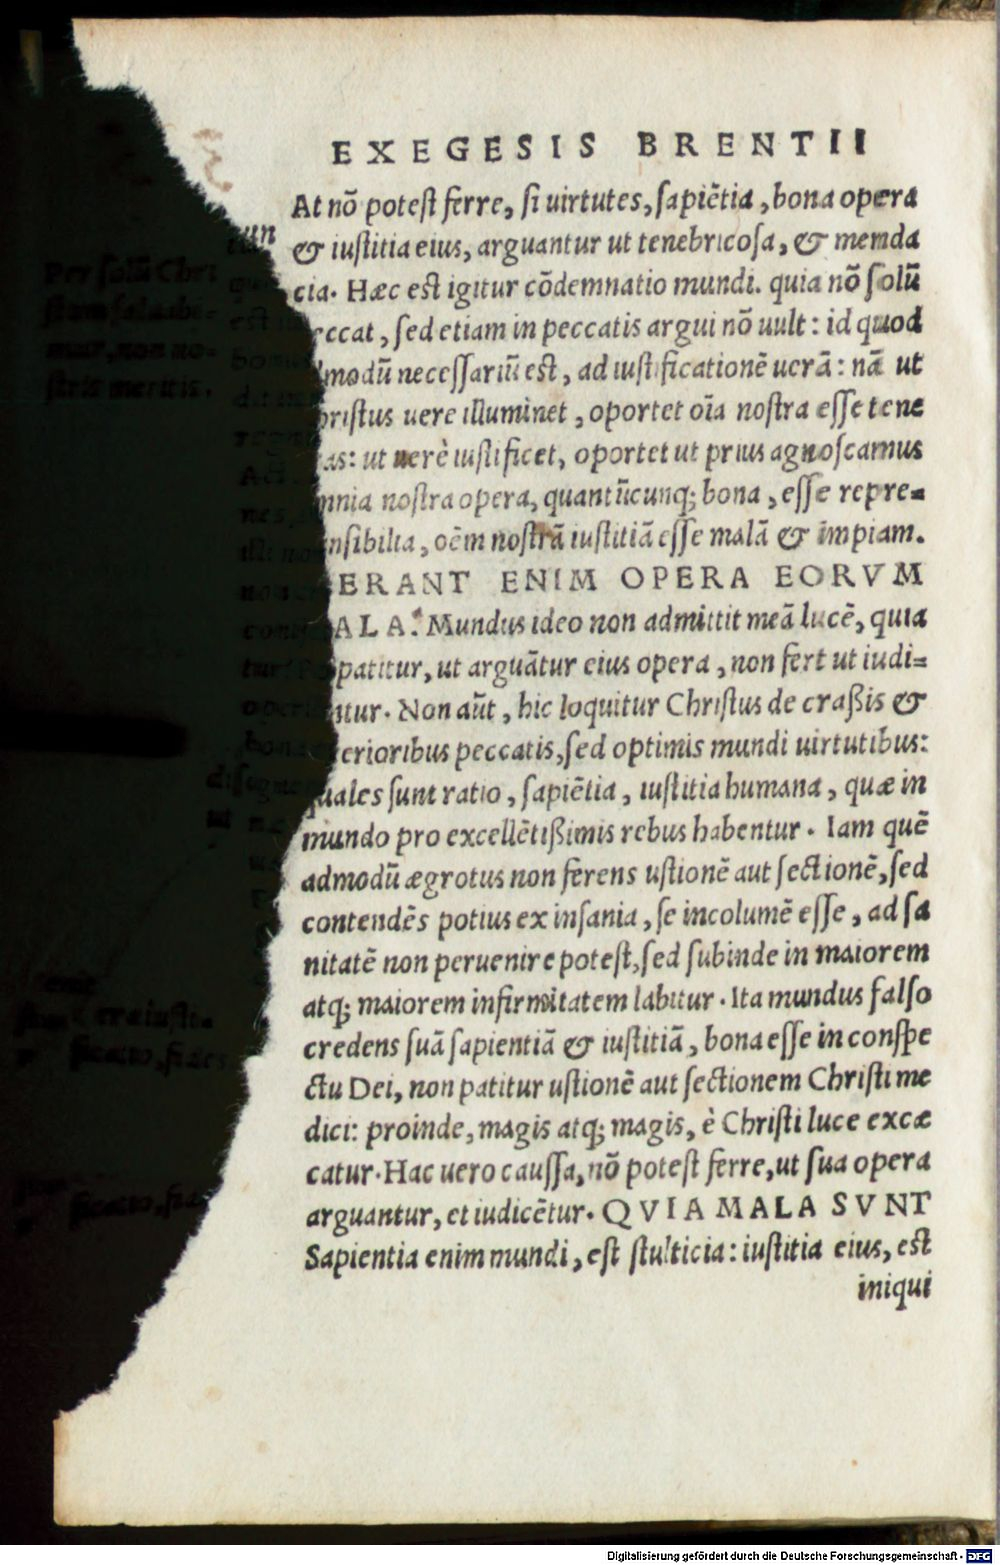 EXEGESIS BRENTII
At nõ potest ferre, si uirtutes, sapiẽtia, bona opera
& iustitia eius, arguantur ut tenebricosa, & menda
cia. Hæc est igitur cõdemnatio mundi. quia nõ solũ
eccat, sed etiam in peccatis argui nõ uult: id quod
modũ necessariũ est, ad iustificationẽ uerã: nã ut
ristus uere illuminet, oportet oĩa nostra esse tene
as: ut uerè iustificet, oportet ut prius agnoscamus
nia nostra opera, quantũcunq; bona, esse repre=
nsibilia, oẽm nostrã iustitiã esse malã & impiam.
ERANT ENIM OPERA EORVM
ALA. Mundus ideo non admittit meã lucẽ, quia
patitur, ut arguãtur eius opera, non fert ut iudi=
tur. Non aũt, hic loquitur Christus de craßis &
erioribus peccatis, sed optimis mundi uirtutibus:
uales sunt ratio, sapiẽtia, iustitia humana, quæ in
mundo pro excellẽtißimis rebus habentur. Iam quẽ
admodũ ægrotus non ferens ustionẽ aut sectionẽ, sed
contendẽs potius ex insania, se incolumẽ esse, ad sa
nitatẽ non peruenire potest, sed subinde in maiorem
atq; maiorem infirmitatem labitur. Ita mundus falso
credens suã sapientiã & iustitiã, bona esse in conspe
ctu Dei, non patitur ustionẽ aut sectionem Christi me
dici: proinde, magis atq; magis, è Christi luce excæ
catur. Hac uero caussa, nõ potest ferre, ut sua opera
arguantur, et iudicẽtur. QVIA MALA SVNT
Sapientia enim mundi, est stulticia: iustitia eius, est
iniqui
Per solũ Chri
stum saluabi=
mur, non no=
stris meritis.
Digitalisierung gefördert durch die Deutsche Forschungsgemeinschaft - DFG